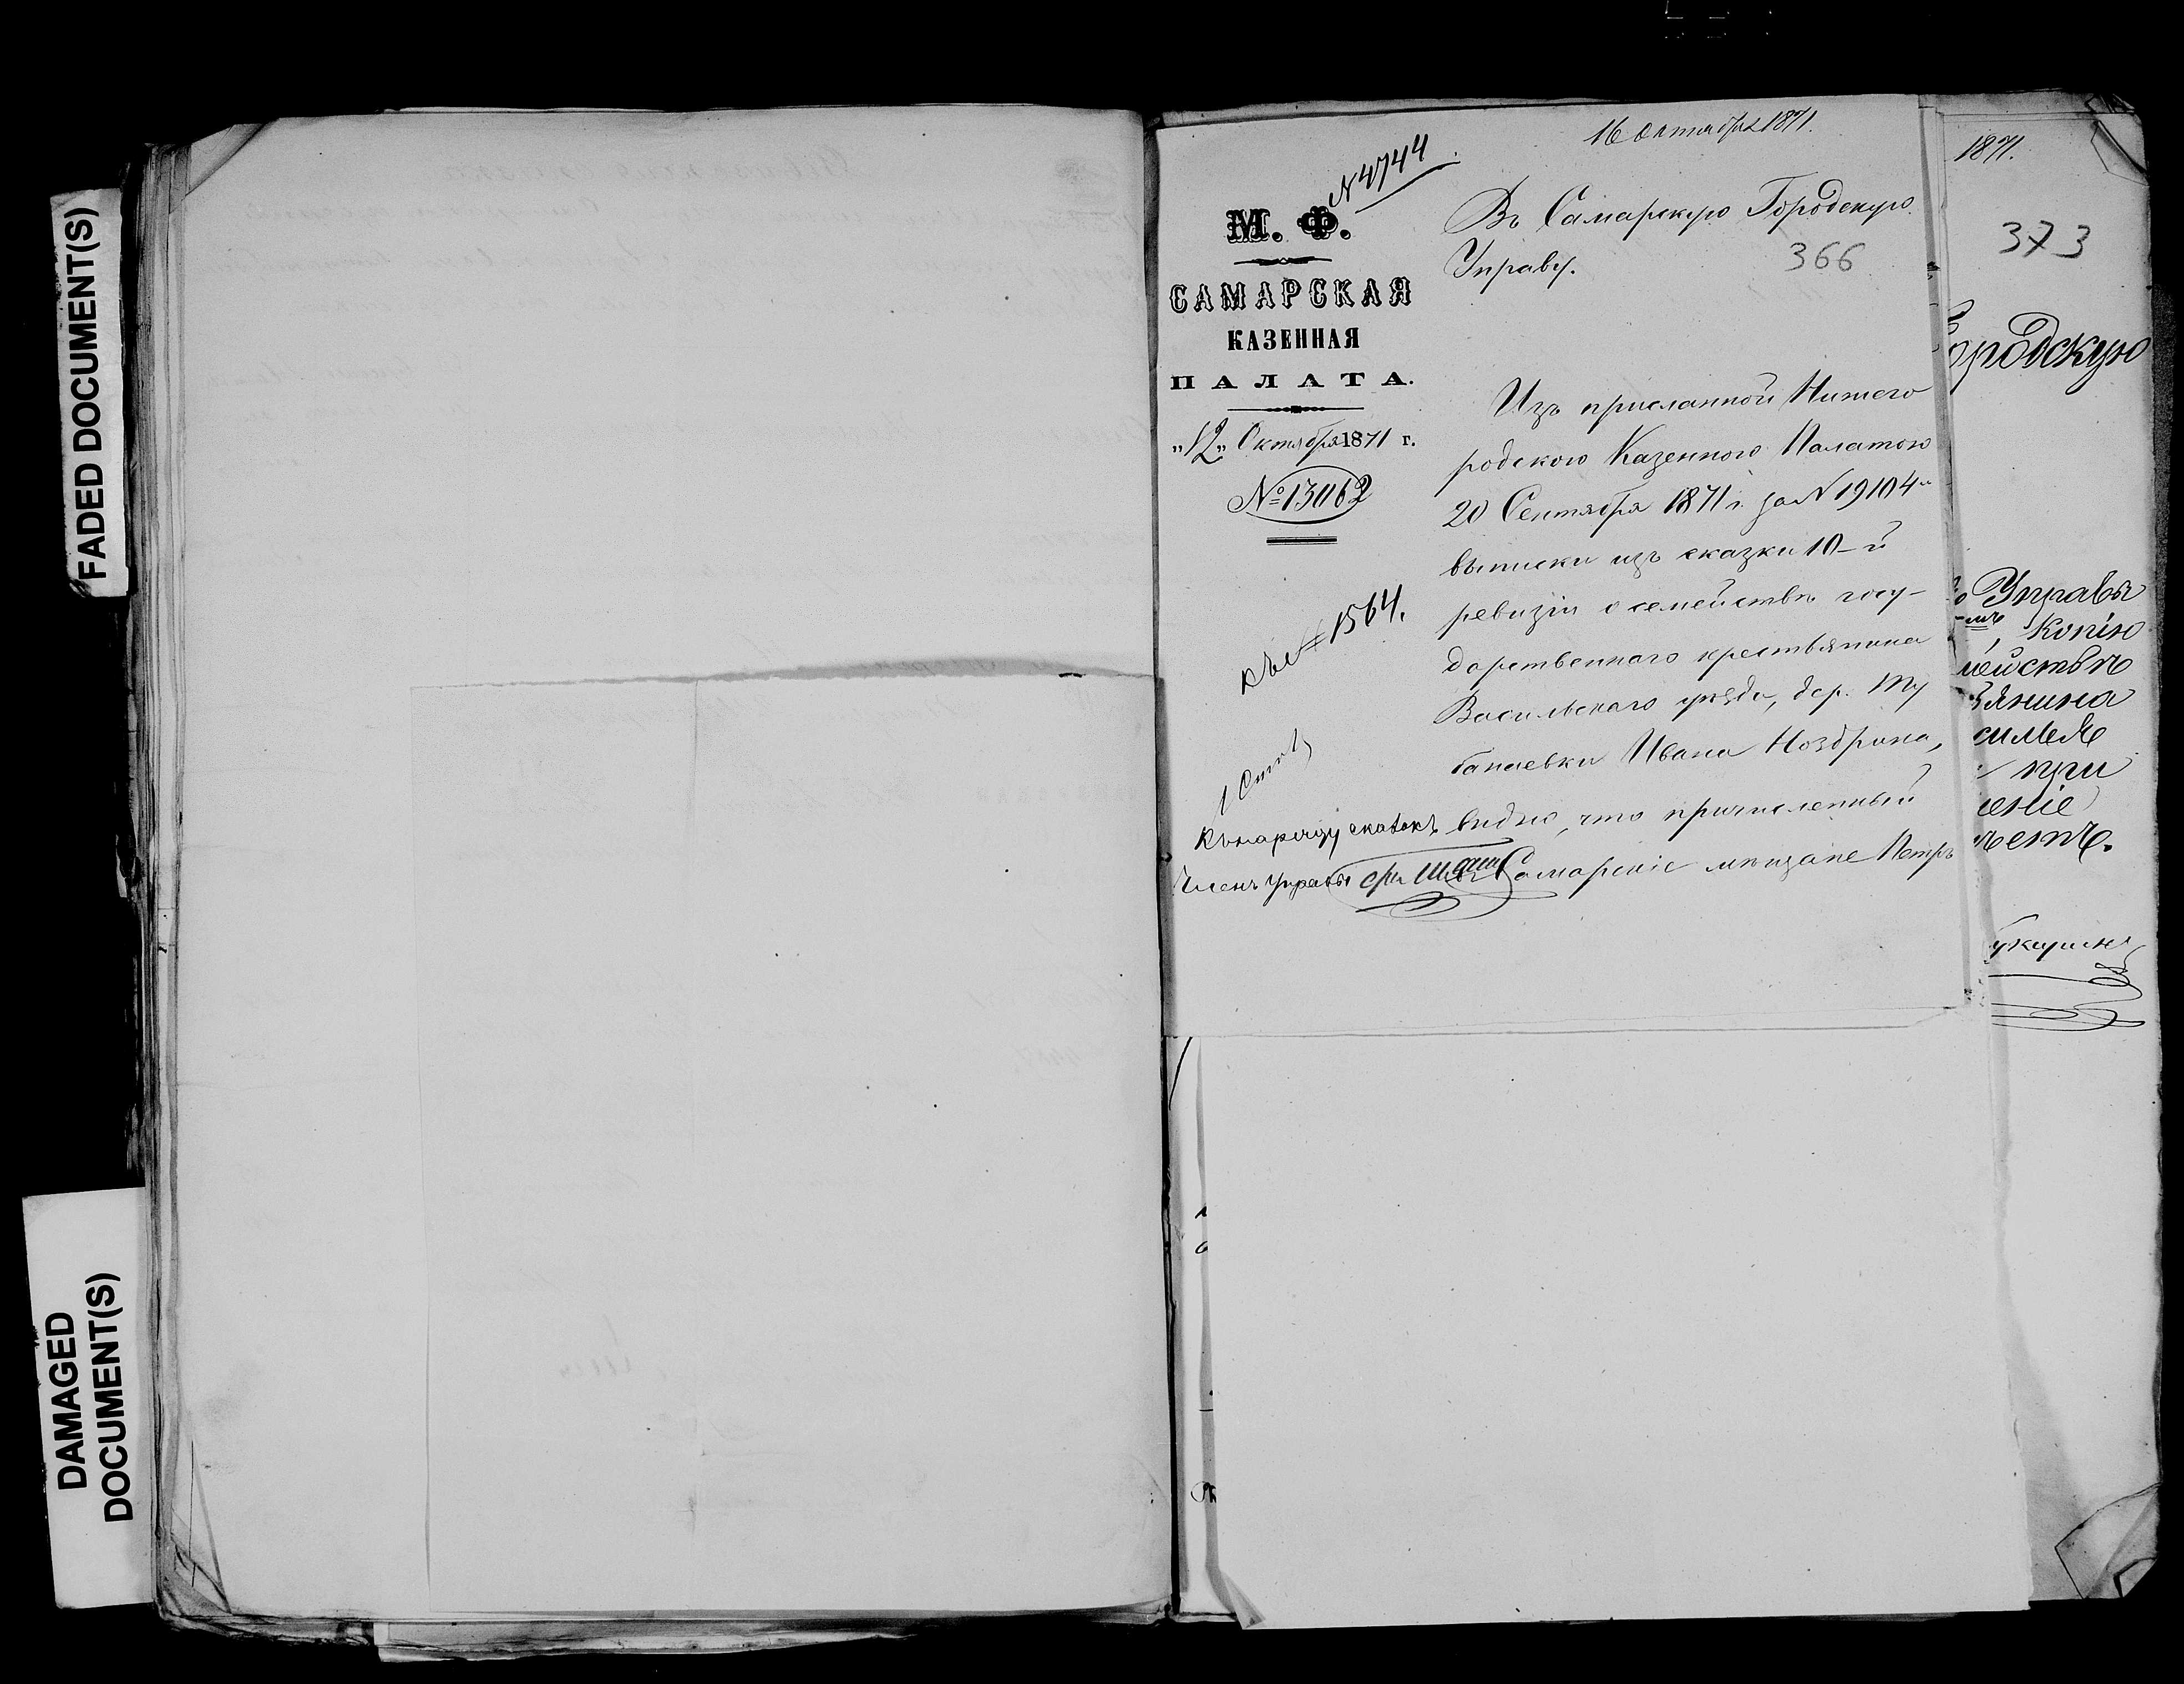 FADED DOCUMENT(S)
DAMAGED
DOCUMENT(S)
16 Октября 1871.
N 4744
М. Ф.
САМАРСКАЯ
КАЗЕННАЯ
ПАЛАТА.
„12„ Октября 1871 г.
№ 13062
1564.
Къ наряду сказокъ
Членъ Управы
Въ Самарскую Городскую
Управу.
366
Изъ присланной Нижего
родскою Казенною Палатою
20 Сентября 1871 г. за N 19104
выписки изъ сказки 10-й
ревизіи о семействѣ госу-
дарственнаго крестьянина
Васильскаго уѣзда, дер. Ту
банаевки Ивана Ноздрина,
видно, что причисленный
Самарскіе мѣщане Петръ
1871.
373
ородскую
Управы
, копію
мействѣ
янина
при
еніе
ѣетъ.